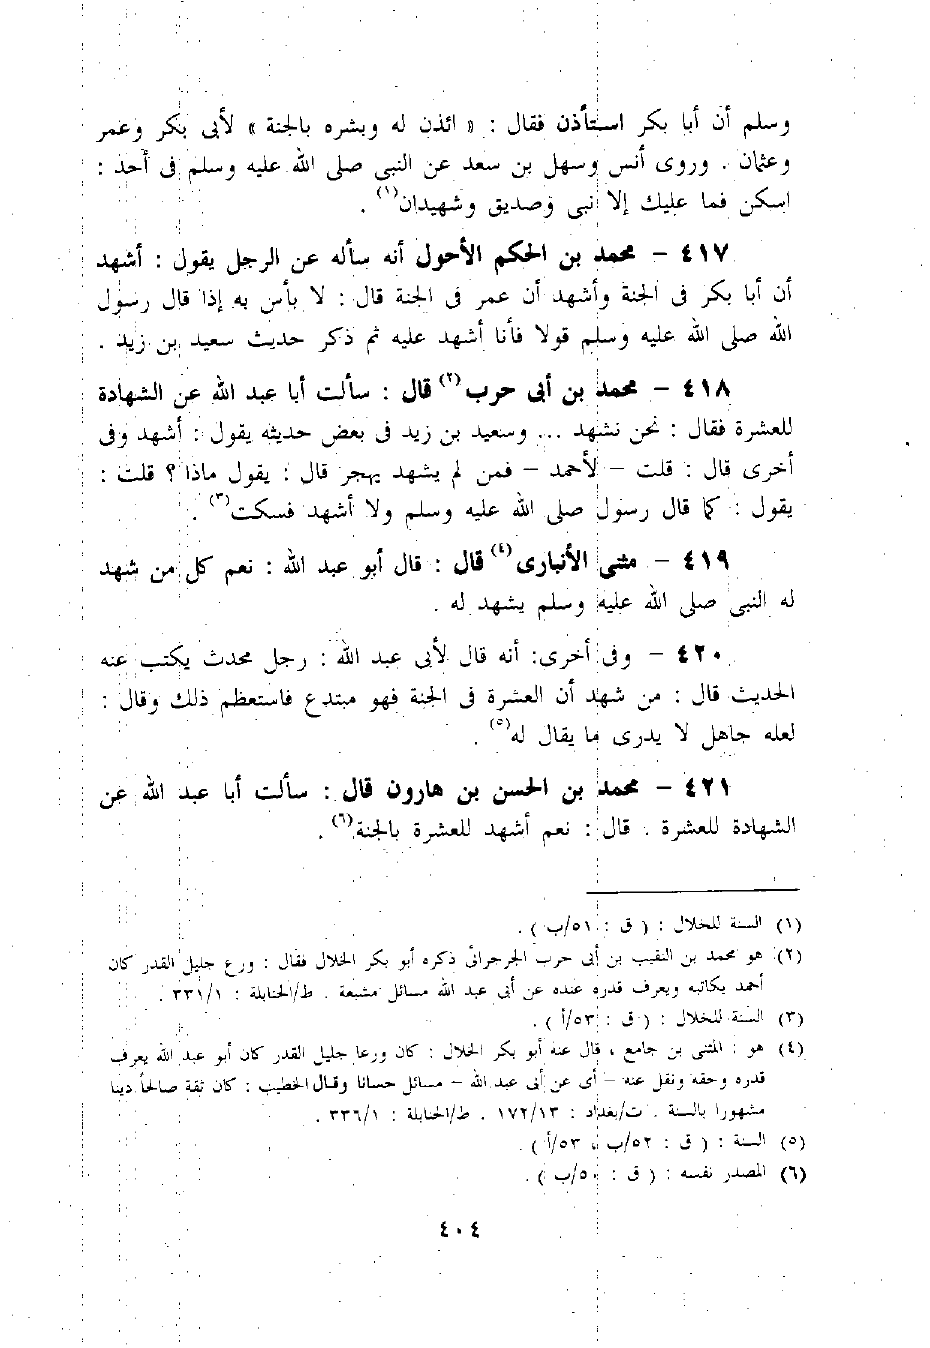 وسلم أن أبا بكر استأذن فقال : « ائذن له وبشره بالجنة » لأبى بكر وعمر
وعثمان . وروى أنس وسهل بن سعد عن النبى صلى الله عليه وسلم فى أحد :
اسكن فما عليك إلا نبى وصديق وشهيدان(١) .
٤١٧ - محمد بن الحكم الأحول أنه سأله عن الرجل يقول : أشهد
أن أبا بكر فى الجنة وأشهد أن عمر فى الجنة قال : لا بأس به إذا قال رسول
الله صلى الله عليه وسلم قولا فأنا أشهد عليه ثم ذكر حديث سعيد بن زيد .
٤١٨ - محمد بن أبى حرب(٢) قال : سألت أبا عبد الله عن الشهادة
للعشرة فقال : نحن نشهد ... وسعيد بن زيد فى بعض حديثه يقول : أشهد وفى
أخرى قال : قلت - لأحمد - فمن لم يشهد يهجر قال : يقول ماذا ؟ قلت :
يقول : كما قال رسول صلى الله عليه وسلم ولا أشهد فسكت(٣) .
٤١٩ - مثنى الأنبارى(٤) قال : قال أبو عبد الله : نعم كل من شهد
له النبى صلى الله عليه وسلم يشهد له .
٤٢٠ - وفى أخرى: أنه قال لأبى عبد الله : رجل محدث يكتب عنه
الحديث قال : من شهد أن العشرة فى الجنة فهو مبتدع فاستعظم ذلك وقال :
لعله جاهل لا يدرى ما يقال له(٥) .
٤٢١ - محمد بن الحسن بن هارون قال : سألت أبا عبد الله عن
الشهادة للعشرة . قال : نعم أشهد للعشرة بالجنة(٦) .
(١) السنة للخلال : ( ق : ٥١/ب ) .
(٢) هو محمد بن النقيب بن أبى حرب الجرجرائى ذكره أبو بكر الخلال فقال : ورع جليل القدر كان
أحمد يكاتبه ويعرف قدره عنده عن أبى عبد الله مسائل مشبعة . ط/الحنابلة : ٣٣١/١ .
(٣) السنة للخلال : ( ق : ٥٣/أ ) .
(٤) هو : المثنى بن جامع ، قال عنه أبو بكر الخلال : كان ورعا جليل القدر كان أبو عبد الله يعرف
قدره وحقه ونقل عنه - أى عن أبى عبد الله - مسائل حسانا وقال الخطيب : كان ثقة صالحاً دينا
مشهورا بالسنة . ت/بغداد : ١٧٢/١٣ . ط/الحنابلة : ٣٣٦/١ .
(٥) السنة : ( ق : ٥٢/ب ، ٥٣/أ ) .
(٦) المصدر نفسه : ( ق : ٥٠/ب ) .
٤٠٤